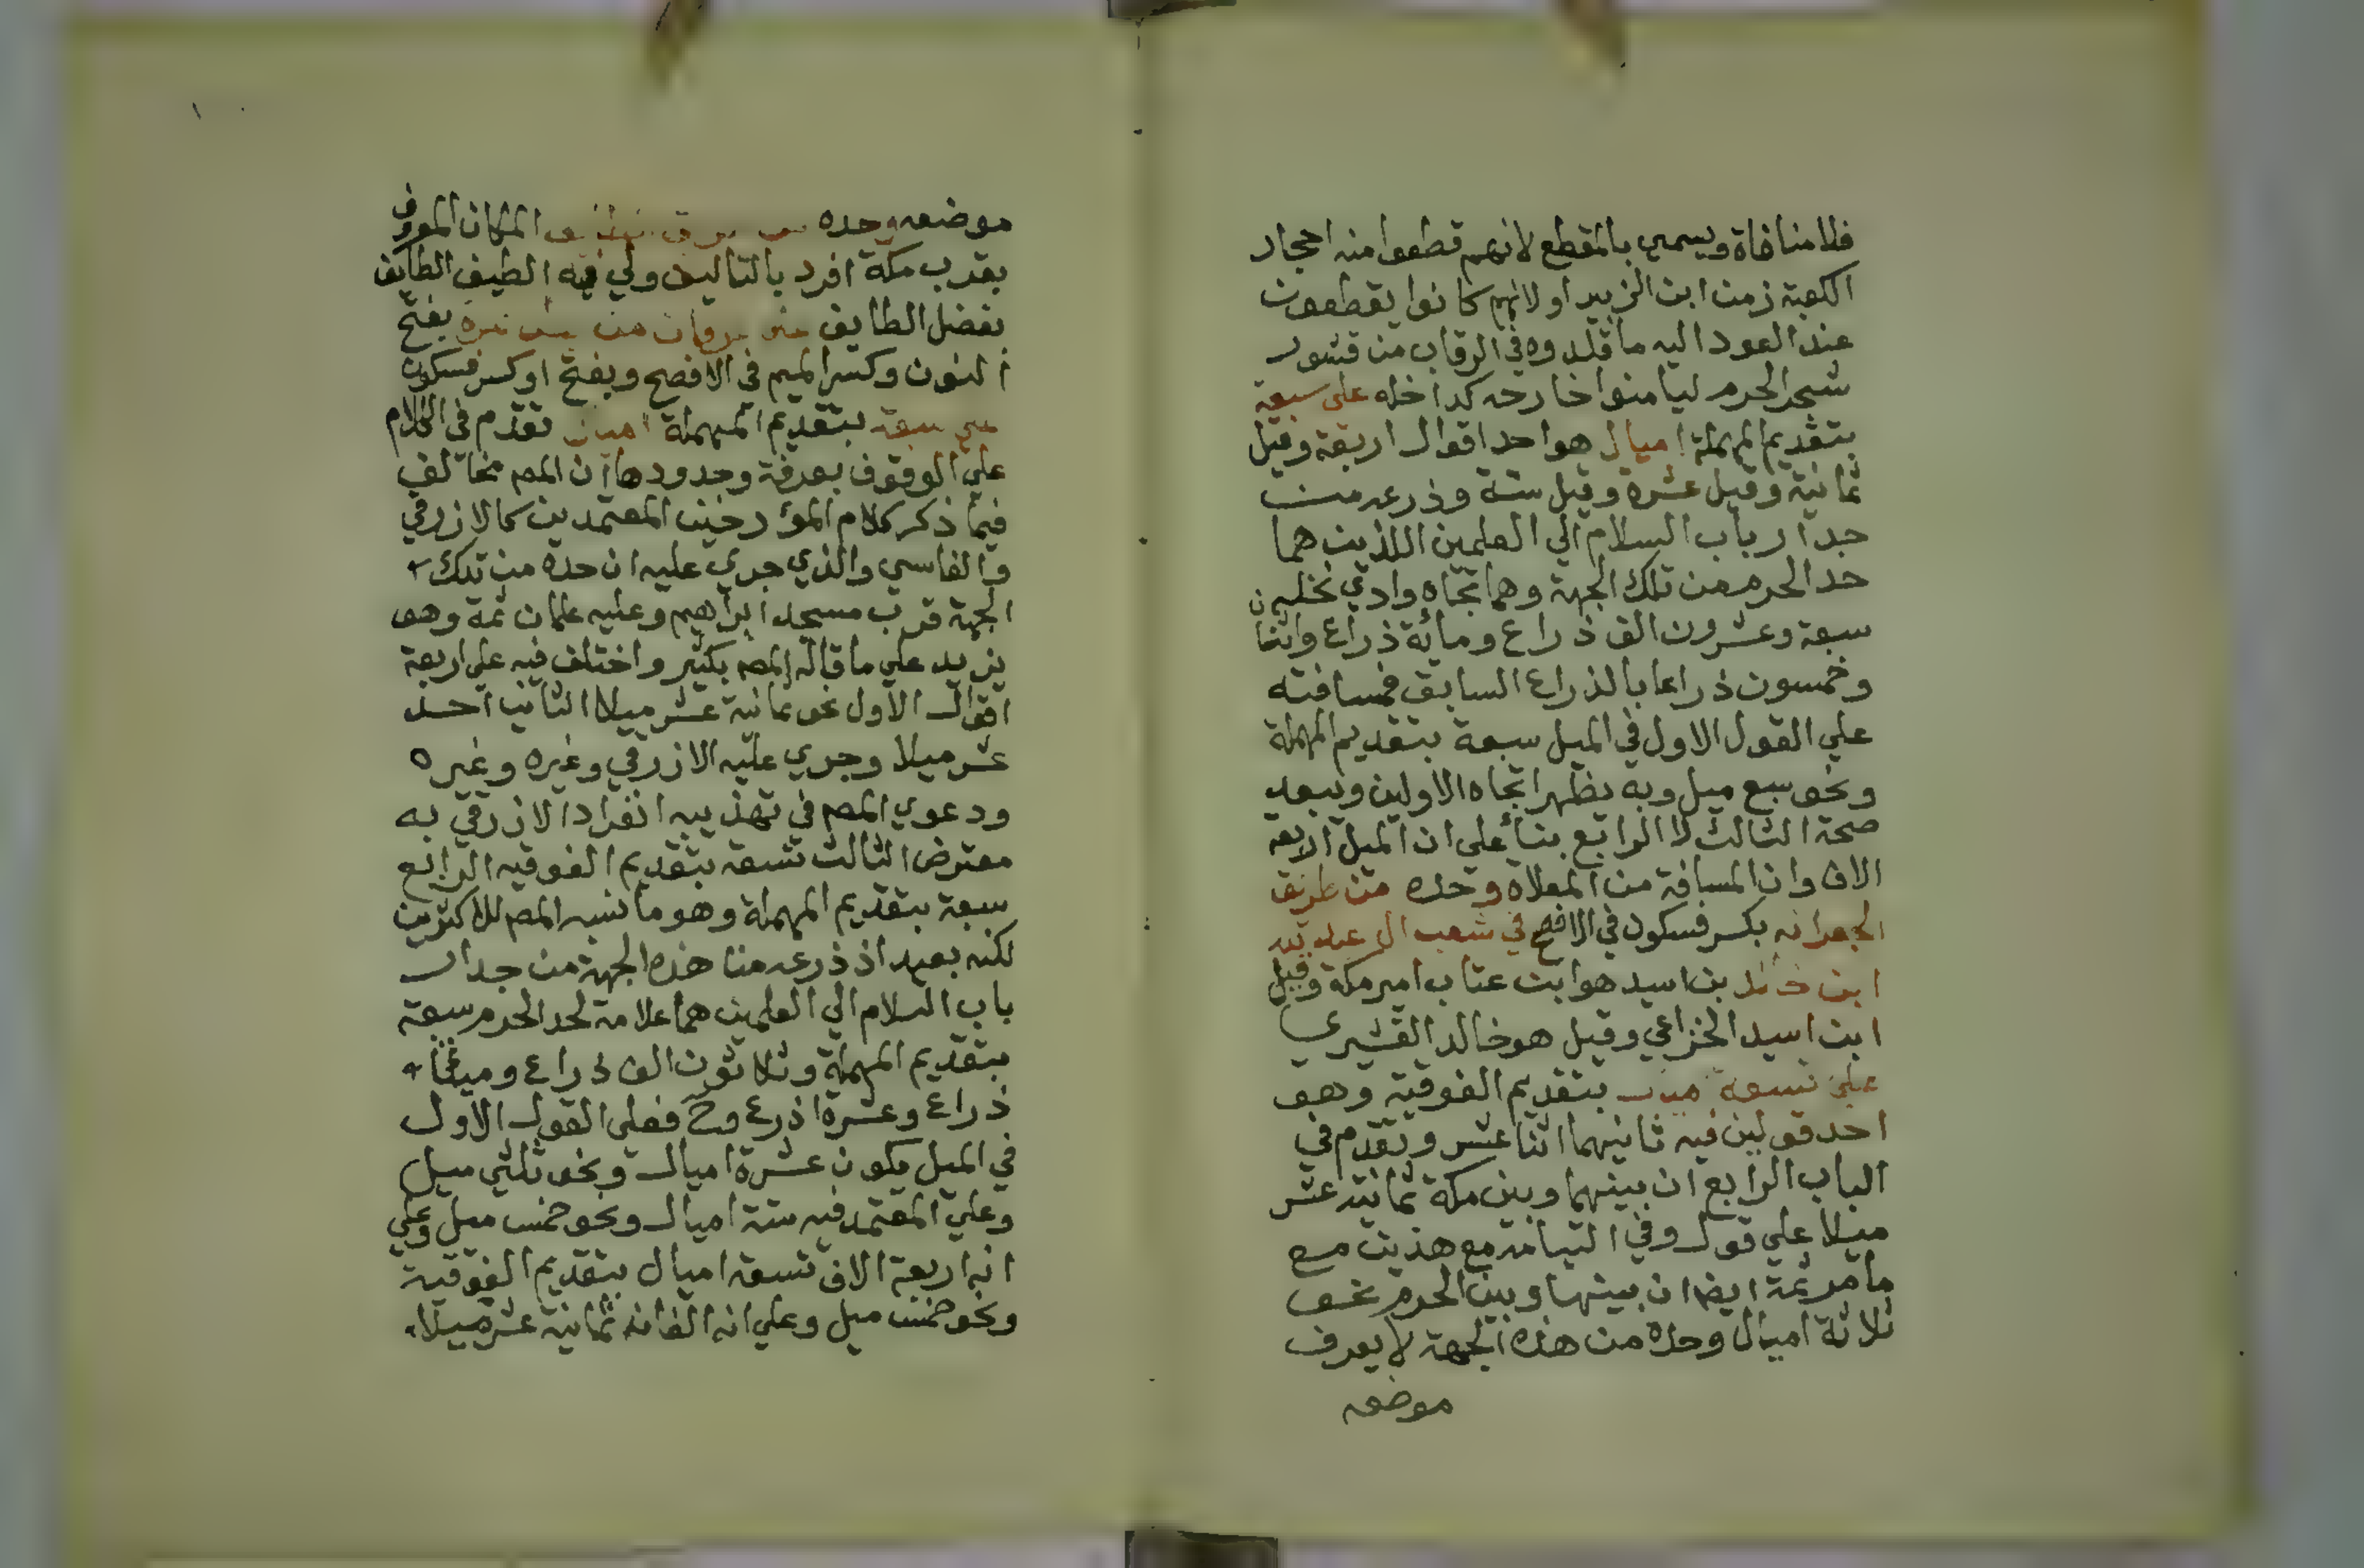 فلا منافاة ويسمي بالمقطع لانهم قطعوا منه احجار
الكعبة زمن ابن الزبير او لانهم كانوا يقطعون
عند العود اليه ما قلدوه في الرقاب من قشور
شجر الحرم ليامنوا خارجه كداخله على سبعة
بتقديم المهملة اميال هو احد اقوال اربعة وقيل
ثمانية وقيل عشرة وقيل ستة وذرعه من
جدار باب السلام الي العلمين اللذين هما
حد الحرم من تلك الجهة وهما تجاه وادي نخلة
سبعة وعشرون الف ذراع ومائة ذراع واثنان
وخمسون ذراعا بالذراع السابق فمسافته
علي القول الاول في الميل سبعة بتقديم المهملة
ونحو سبع ميل وبه يظهر اتجاه الاولين ويبعد
صحة الثالث لا الرابع بناء علي ان الميل اربعة
الاف وان المسافة من المعلاه وحده من طريق
الجعرانه بكسر فسكون في الافصح في شعب ال عبد الله
ابن خالد بن اسيد هو ابن عتاب امير مكة وقيل
ابن اسيد الخزاعي وقيل هو خالد القشيري
على تسعة اميال بتقديم الفوقية وهو
احد قولين فيه ثانيهما اثنا عشر وتقدم في
الباب الرابع ان بينهما وبين مكة ثمانية عشر
ميلا علي قول وفي التيامه مع هذين مع
ما مر ثمة ايضا ان بينها وبين الحرم نحو
ثلاثة اميال وحده من هذه الجهة لا يعرف
موضعه
موضعه وحده من طريق الطايف المكان المعروف
بقرب مكة افرد بالتاليف ولي فيه الطيف الطايف
بفضل الطايف على عرفات من بطن نمرة بفتح
النون وكسر الميم في الافصح وبفتح او كسر فسكون
على سبعة بتقديم المهملة اميال تقدم في الكلام
علي الوقوف بعرفة وحدودها ان المصـ مخالف
فيما ذكر كلام المؤرخين المعتمدين كالازرقي
والفاسي والذي جري عليه ان حده من تلك
الجهة قرب مسجد ابراهيم وعليه علمان ثمة وهو
يزيد علي ما قاله المصـ بكثير واختلف فيه علي اربعة
اقوال الاول نحو ثمانية عشر ميلا الثاني احد
عشر ميلا وجري عليه الازرقي وغيره وغيره
ودعوي المصـ في تهذيبه انفراد الازرقي به
معترض الثالث تسعة بتقديم الفوقيه الرابع
سبعة بتقديم المهملة وهو ما نسبه المصـ للاكثرين
لكنه بعيد اذ ذرعه من هذه الجهة من جدار
باب السلام الي العلمين هما علامة لحد الحرم سبعة
بتقديم المهملة وثلاثون الف ذراع وميتا
ذراع وعشرة اذرع وح فعلى القول الاول
في الميل يكون عشرة اميال ونحو ثلثي ميل
وعلي المعتمد فيه ستة اميال ونحو خمس ميل وعلي
انه اربعة الاف تسعة اميال بتقديم الفوقية
ونحو خمس ميل وعلي انه الفان ثمانية عشر ميلا